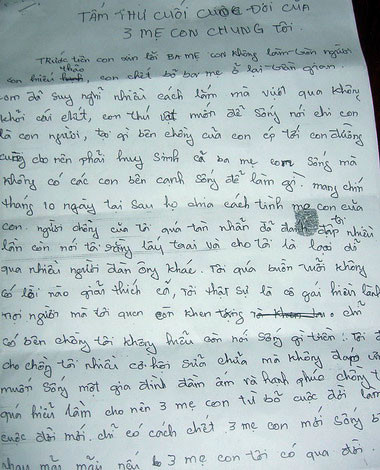 TÂM THƯ CUỐI CUỘC ĐỜI CỦA
3 MẸ CON CHÚNG TÔI
TRƯỚC tiên con xin lỗi BA MẸ con không làm tròn người
con hiếu thảo, con chết bỏ ba mẹ ở lại trần gian.
con đã suy nghĩ nhiều cách lắm mà vượt qua không
khỏi cái chết, con thú vật muốn để sống nói chi con
là con người, tại gì bên chồng của con ép tới con đường
cùng cho nên phải huy sinh cả ba mẹ con sống mà
không có các con bên cạnh sống để làm gì. mang chín
tháng 10 ngày tại sau họ chia cách tình mẹ con của
con. người chồng của tôi quá tàn nhẫn đã đánh đập tôi nhiều
lần còn nói tôi lấy traai và cho tôi là loại đĩ
qua nhiều người đàn ông khác. Tôi quá buồn tuổi không
có lời nào giải thích cả, Tôi thật sự là cô gái hiền lành
nơi người mà tôi quen còn khen tặng chỉ
có bên chồng tôi không hiểu còn nói sống gì tiền. Tôi đã
cho chồng tôi nhiều cơ hội sửa chữa mà không đáp ứng
muốn sống một gia đình đầm ấm và hạnh phúc chồng tôi
quá hiểu lầm cho nên 3 mẹ con từ bỏ cuộc đời làm
cuộc đời mới. chỉ có cách chết 3 mẹ con mới sống bên
nhau mãi mãi nếu 3 mẹ con tôi có qua đời.